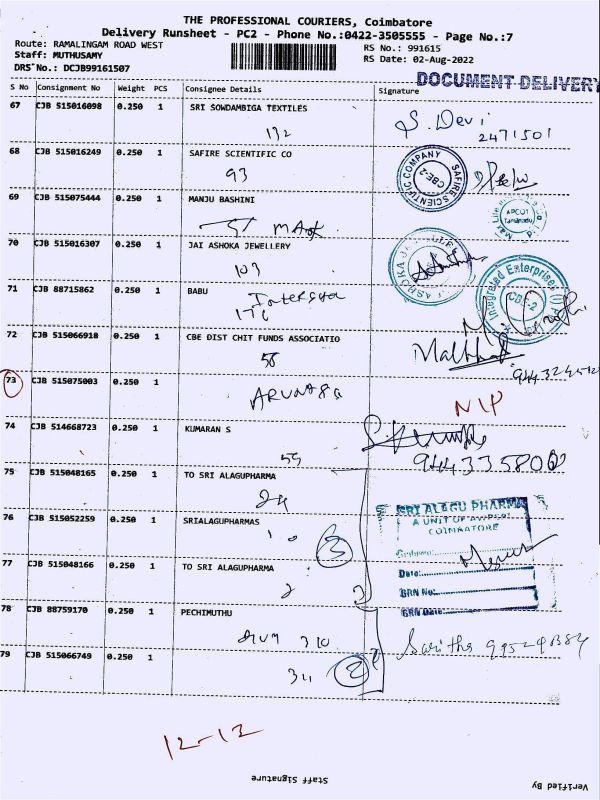 THE PROFESSIONAL COURIERS, Coimbatore
Delivery Runsheet - PC2 - Phone No.:0422-3505555 - Page No.:7
Route: RAMALINGAM ROAD WEST
Staff: MUTHUSAMY
DRS No.: DCJB99161507
RS No.: 991615
RS Date: 02-Aug-2022
DOCUMENT DELIVERY
S No Consignment No Weight PCS Consignee Details Signature
67 CJB 515016098 0.250 1 SRI SOWDAMBIGA TEXTILES
172
S. Devi
2471501
68 CJB 515016249 0.250 1 SAFIRE SCIENTIFIC CO
93
SAFIRE SCIENTIFIC COMPANY
CBE-2
69 CJB 515075444 0.250 1 MANJU BASHINI
APCOT
Tamilnadu
70 CJB 515016307 0.250 1 JAI ASHOKA JEWELLERY
103
71 CJB 88715862 0.250 1 BABU
Integrated Enterprises
CBE-2
72 CJB 515066918 0.250 1 CBE DIST CHIT FUNDS ASSOCIATIO
56
73 CJB 515075003 0.250 1
NIP
74 CJB 514668723 0.250 1 KUMARAN S
55
75 CJB 515048165 0.250 1 TO SRI ALAGUPHARMA
24
76 CJB 515052259 0.250 1 SRIALAGUPHARMAS
3
SRI ALAGU PHARMA
COIMBATORE
Date:
GRN No:
GRN Date:
77 CJB 515048166 0.250 1 TO SRI ALAGUPHARMA
2
78 CJB 88759170 0.250 1 PECHIMUTHU
310
Saritha
79 CJB 515066749 0.250 1
2
12-12
Staff Signature
Verified By